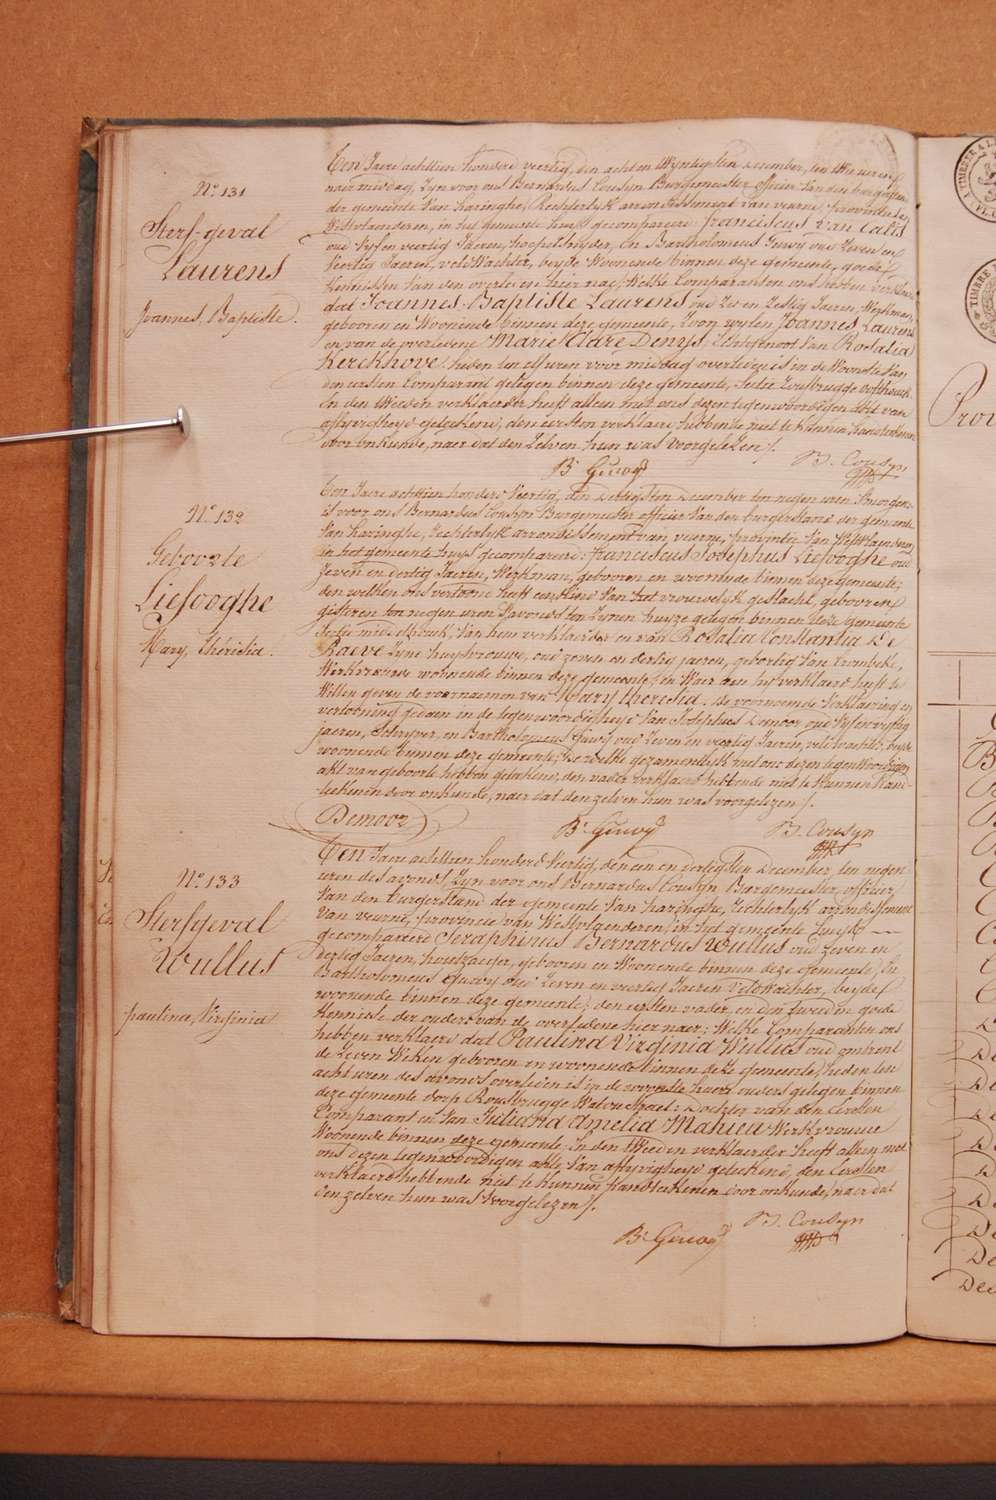 N.° 131
Sterf-geval
Laurens
Joannes, Baptiste.
Ten Jaere achttien honderd veertig, den achten Twyntigsten december, ten vier uren
naer middag, Zyn voor ons Bernardus Cousyn Burgemeester officier van den burgerstand
der gemeente van haringhe, Rechterlyk arrondissement van veurne, provintie van
Westvlaenderen, in het gemeente huys gecompareerd franciscus van Calis
oud vyf en veertig Jaeren, hoepelsnyder, En Bartholomeus Guwy oud Zeven en
Veertig Jaeren, veld Wachter, beyde Woonende binnen deze gemeente, goede
Kennissen van den overleden hier naer; Welke Comparanten ons hebben verklaerd
dat Joannes Baptiste Laurens oud Zes en Zestig Jaeren, Werkman,
gebooren en Woonende binnen deze gemeente, Zoon wylen Joannes Laurens
en van de overledene Marie Clare Denys, Echtgenoot van Rosalia
Kerckhove, heden ten elf uren voor middag overleden is in de Woonste van
den eersten Comparant gelegen binnen deze gemeente, Sectie Rousbrugge oosthouck.
En den tweeden verklaerder heeft alleen met ons dezen tegenwoordigen akt van
aflyvigheyd geteekend, den eersten verklaerd hebbende niet te kunnen handteekenen
door onkunde, naer dat den Zelven hun was voorgelezen /.
B.t Guwy B. Cousyn
N.° 132
Geboorte
Liefooghe
Mary, Thérésia.
Ten Jaere achttien honderd Veertig, den dertigsten december ten negen uren Smorgens
is voor ons Bernardus Cousyn Burgemeester officier Van den burgerstand der gemeente
Van haringhe, rechterlyk arrondissement van veurne, provintie Van Westvlaenderen
in het gemeente huys gecompareerd: franciscus Josephus Liefooghe oud
Zeven en dertig Jaeren, Werkman, gebooren en woonende binnen deze gemeente;
den welken ons vertoond heeft een kind Van het vrouwelyk geslacht, gebooren
gisteren ten negen uren Savonds ten Zynen huyze gelegen binnen deze gemeente
Sectie middelhouck, Van hem verklaerder en van Rosalia Constantia De
Raeve Zyne huysvrouwe, oud zeven en dertig jaeren, geboortig Van Crombeke,
Werkvrouwe woonende binnen deze gemeente, en Waer aen hy verklaerd heeft te
Willen geven de voornaemen van Mary theresia. de voornoemde Verklaering en
vertooning gedaen in de tegenwoordigheyd Van Josephus Demoor oud Vyf en vyftig
jaeren, Schryver, en Bartholomeus Guwy oud Zeven en veertig Jaeren, veld wachter, beyde
woonende binnen deze gemeente; de welke gezamentlyk met ons dezen tegenwoordigen
akt van geboorte hebben geteekend, den vader verklaerd hebbende niet te kunnen hand-
teekenen door onkunde, naer dat den zelven hun was voorgelezen /.
Demoor B.t Guwy B. Cousyn
N.° 133
Sterfgeval
Wullus
paulina, Virginia
Ten Jaere achttien honderd Veertig, den een en dertigsten december, ten negen
uren des avonds, Zyn voor ons Bernardus Cousyn Burgemeester, officier
Van den burgerstand der gemeente Van haringhe, rechterlyk arrondissement
Van veurne, provincie van Westvlaenderen, in het gemeente huys
gecompareerd Seraphinus Bernardus Wullus oud zeven en
dertig Jaeren, houtzaeger, gebooren en Woonende binnen deze gemeente, En
Bartholomeus Guwy oud Zeven en veertig Jaeren Veldwachter, beyde
woonende binnen deze gemeente; den eersten vader, en den tweeden goede
Kennisse der ouders van de overledene hier naer; Welke Comparanten ons
hebben verklaerd dat Paulina Virginia Wullus oud omtrent
de Zeven Weken gebooren en woonende binnen deze gemeente, heden ten
acht uren des avonds overleden is in de woonste haers ouders gelegen binnen
deze gemeente dorp Rousbrugge Waton Straet; Dochter van den Eersten
Comparant en Van Juliana Amelia Mahieu Werkvrouwe
Woonende binnen deze gemeente. En den tweeden verklaerder heeft alleen met
ons dezen tegenwoordigen akte Van aflyvigheyd geteekend, den Eersten
verklaerd hebbende niet te kunnen handteekenen door onkunde, naer dat
den zelven hun was voorgelezen /.
B.t Guwy B. Cousyn